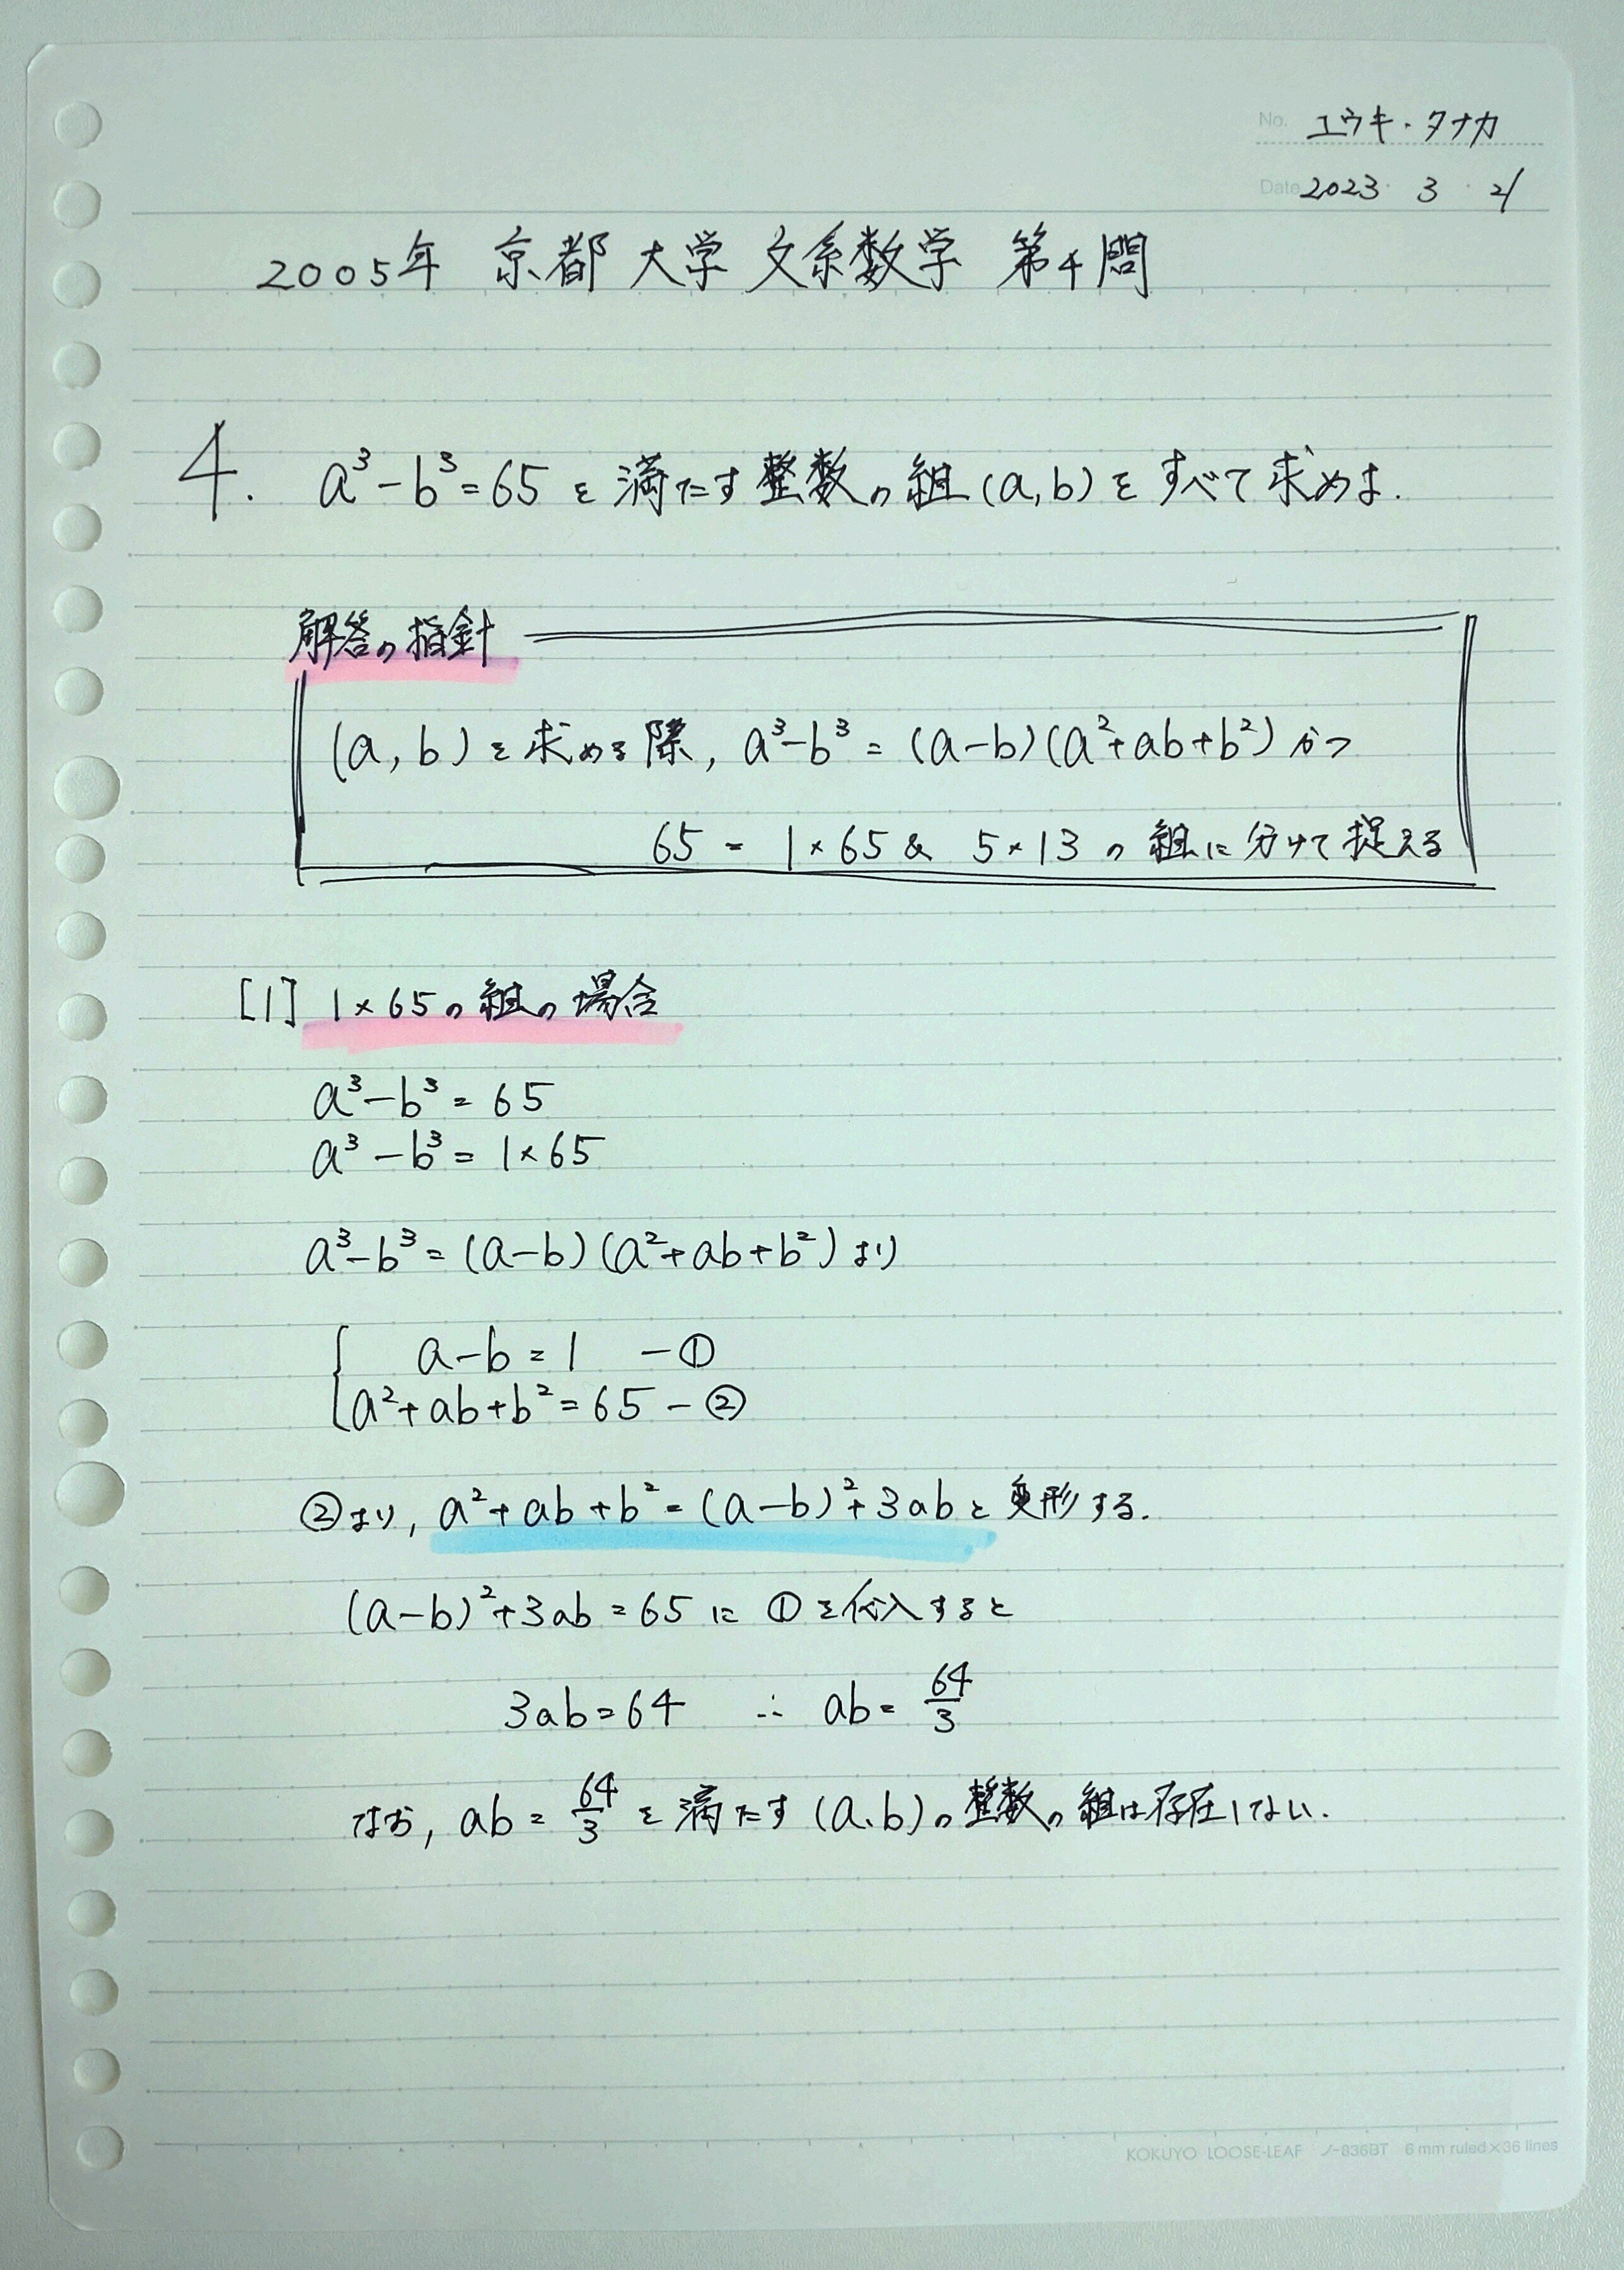 No. ユウキ・タナカ
Date 2023・3・21
2005年 京都大学 文系数学 第4問
4. a³-b³=65 を満たす整数の組(a,b)をすべて求めよ.
解答の指針
(a,b)を求める際, a³-b³=(a-b)(a²+ab+b²)かつ
65=1×65 & 5×13の組に分けて捉える
[1] 1×65の組の場合
a³-b³=65
a³-b³=1×65
a³-b³=(a-b)(a²+ab+b²)より
a-b=1 -①
a²+ab+b²=65 -②
②より, a²+ab+b²=(a-b)²+3abと変形する.
(a-b)²+3ab=65に①を代入すると
3ab=64 ∴ ab=64/3
なお, ab=64/3を満たす(a、b)の整数の組は存在しない.
KOKUYO LOOSE-LEAF ノ-836BT 6mm ruled×36 lines